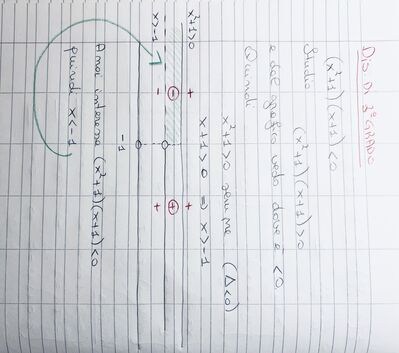 DIS. DI 3° GRADO
(x²+1)(x+1)<0
Studio (x²+1)(x+1)>0
e dal grafico vedo dove è <0
Quindi
x²+1>0 sempre (Δ<0)
x+1>0 ⇒ x>-1
-1
x²+1>0 + +
x>-1 - +
- +
A noi interessa (x²+1)(x+1)<0
quindi x<-1